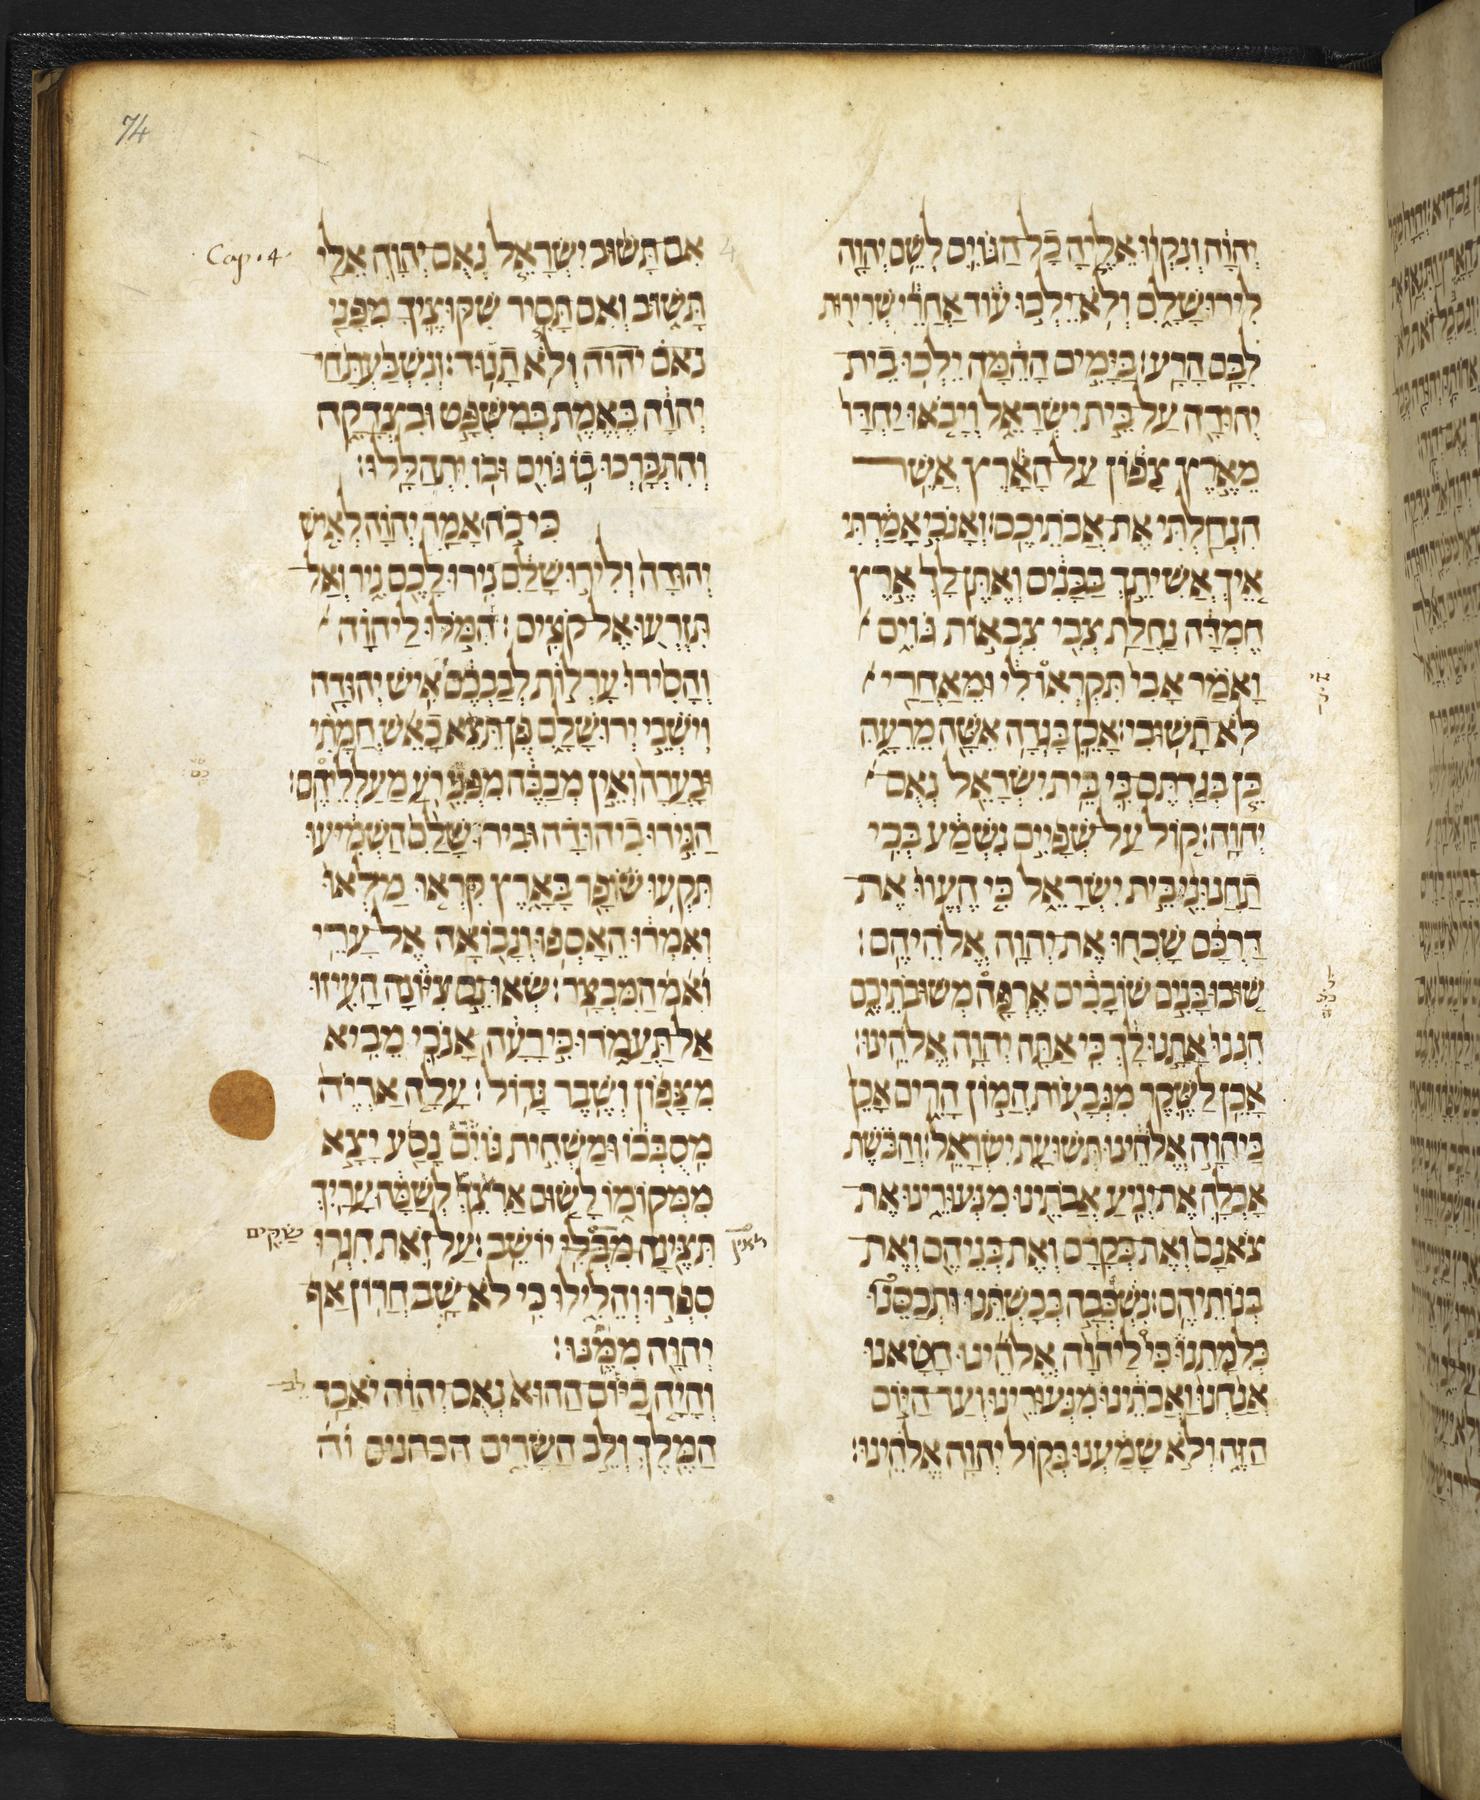 74
יְהֹוָה וְנִקְווּ אֵלֶיהָ כָל הַגּוֹיִם לְשֵׁם יְהוָה
לִירוּשָׁלִָם וְלֹא יֵלְכוּ עוֹד אַחֲרֵי שְׁרִירוּת
לִבָּם הָרָע׃ בַּיָּמִים הָהֵמָּה יֵלְכוּ בֵית
יְהוּדָה עַל בֵּית יִשְׂרָאֵל וְיָבֹאוּ יַחְדָּו
מֵאֶרֶץ צָפוֹן עַל הָאָרֶץ אֲשֶׁר
הִנְחַלְתִּי אֶת אֲבֹתֵיכֶם׃ וְאָנֹכִי אָמַרְתִּי
אֵיךְ אֲשִׁיתֵךְ בַּבָּנִים וְאֶתֶּן לָךְ אֶרֶץ
חֶמְדָּה נַחֲלַת צְבִי צִבְאוֹת גּוֹיִם
וָאֹמַר אָבִי תִּקְרְאוּ לִי וּמֵאַחֲרַי
לֹא תָשׁוּבִי׃ אָכֵן בָּגְדָה אִשָּׁה מֵרֵעָהּ
כֵּן בְּגַדְתֶּם בִּי בֵּית יִשְׂרָאֵל נְאֻם
יְהוָה׃ קוֹל עַל שְׁפָיִים נִשְׁמָע בְּכִי
תַחֲנוּנֵי בֵּית יִשְׂרָאֵל כִּי הֶעֱווּ אֶת
דַּרְכָּם שָׁכְחוּ אֶת יְהוָה אֱלֹהֵיהֶם׃
שׁוּבוּ בָּנִים שׁוֹבָבִים אֶרְפָּה מְשׁוּבֹתֵיכֶם
הִנְנוּ אָתָנוּ לָךְ כִּי אַתָּה יְהוָה אֱלֹהֵינוּ׃
אָכֵן לַשֶּׁקֶר מִגְּבָעוֹת הֲמוֹן הָרִים אָכֵן
בַּיהוָה אֱלֹהֵינוּ תְּשׁוּעַת יִשְׂרָאֵל׃ וְהַבֹּשֶׁת
אָכְלָה אֶת יְגִיעַ אֲבֹתֵינוּ מִנְּעוּרֵינוּ אֶת
צֹאנָם וְאֶת בְּקָרָם וְאֶת בְּנֵיהֶם וְאֶת
בְּנוֹתֵיהֶם׃ נִשְׁכְּבָה בְּבָשְׁתֵּנוּ וּתְכַסֵּנוּ
כְּלִמָּתֵנוּ כִּי לַיהוָה אֱלֹהֵינוּ חָטָאנוּ
אֲנַחְנוּ וַאֲבֹתֵינוּ מִנְּעוּרֵינוּ וְעַד הַיּוֹם
הַזֶּה וְלֹא שָׁמַעְנוּ בְּקוֹל יְהוָה אֱלֹהֵינוּ׃
Cap. 4.
4
אִם תָּשׁוּב יִשְׂרָאֵל נְאֻם יְהוָה אֵלַי
תָּשׁוּב וְאִם תָּסִיר שִׁקּוּצֶיךָ מִפָּנַי
נאם יהוה וְלֹא תָנוּד׃ וְנִשְׁבַּעְתָּ חַי
יְהוָה בֶּאֱמֶת בְּמִשְׁפָּט וּבִצְדָקָה
וְהִתְבָּרְכוּ בוֹ גּוֹיִם וּבוֹ יִתְהַלָּלוּ׃
כִּי כֹה אָמַר יְהוָה לְאִישׁ
יְהוּדָה וְלִירוּשָׁלִַם נִירוּ לָכֶם נִיר וְאַל
תִּזְרְעוּ אֶל קֹצִים׃ הִמֹּלוּ לַיהוָה
וְהָסִירוּ עָרְלוֹת לְבַבְכֶם אִישׁ יְהוּדָה
וְיֹשְׁבֵי יְרוּשָׁלִָם פֶּן תֵּצֵא כָאֵשׁ חֲמָתִי
וּבָעֲרָה וְאֵין מְכַבֶּה מִפְּנֵי רֹעַ מַעַלְלֵיהֶם׃
הַגִּידוּ בִיהוּדָה וּבִירוּשָׁלִַם הַשְׁמִיעוּ
תִּקְעוּ שׁוֹפָר בָּאָרֶץ קִרְאוּ מַלְאוּ
וְאִמְרוּ הֵאָסְפוּ וְנָבוֹאָה אֶל עָרֵי
הַמִּבְצָר׃ שְׂאוּ נֵס צִיּוֹנָה הָעִיזוּ
אַל תַּעֲמֹדוּ כִּי רָעָה אָנֹכִי מֵבִיא
מִצָּפוֹן וְשֶׁבֶר גָּדוֹל׃ עָלָה אַרְיֵה
מִסֻּבְּכוֹ וּמַשְׁחִית גּוֹיִם נָסַע יָצָא
מִמְּקוֹמוֹ לָשׂוּם אַרְצֵךְ לְשַׁמָּה עָרַיִךְ
תִּצֶּינָה מִבְּלִי יוֹשֵׁב׃ עַל זֹאת חִגְרוּ שַׂקִּים
מאין
סִפְדוּ וְהֵלִילוּ כִּי לֹא שָׁב חֲרוֹן אַף
יְהוָה מִמֶּנּוּ׃
וְהָיָה בַיּוֹם הַהוּא נְאֻם יְהוָה יֹאבַד לב
הַמֶּלֶךְ וְלֵב הַשָּׂרִים הכהנים